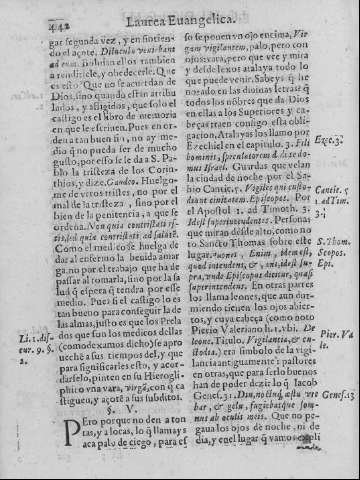 442
Laurea Euangelica.
gar segunda vez, y en sintien-
do el açote, Diluculo veniebant
ad eum. Boluian ellos tambien
a rendirsele, y obedecerle. Que
es esto? Que no se acuerdan de
Dios, sino quando están atribu
lados, y afligidos, que solo el
castigo es el libro de memoria
en que le escriuen. Pues en or-
den a tan buen fin, no ay me-
dio q̃ no pueda ser de mucho
gusto, por esso se le da a S. Pa-
blo la tristeza de los Corin-
thios, y dize, Gaudeo. Huelgo-
me de veros tristes, no por el
mal de la tristeza, sino por el
bien de la penitencia, a que se
ordena. Non quia contristati es-
tis, sed quia contristati ad
Como el medico se huelga de
dar al enfermo la beuida amar
ga, no por el trabajo que ha de
passar al tomarla, sino por la sa
lud q̃ espera q̃ tendra por esse
medio. Pues si el castigo lo es
tan bueno para conseguir la de
las almas, justo es que los Prela
dos que son los medicos dellas
(como dexamos dicho) se apro
uechẽ a sus tiempos del, y que
para significarles esto, y acor-
darselo, pinten en su Hierogli-
phico vna vara, virgã, con q̃ ca
stiguen, y açote a sus subditos.
§. V.
Pero porque no den a ton
tas, y a locas, lo q̃ llaman y
aca palo de ciego, para es
so se ponen vn ojo encima, Vir
gam vigilantem, palo, pero con
ojos; vara, pero que vee y mira
y desde lexos atalaya todo lo
que puede venir. Sabeys q̃ he
notado en las diuinas letras? q̃
todos los nõbres que da Dios
en ellas a los Superiores y ca-
beças traen consigo esta obli-
gacion. Atalayas los llamo por
Ezechiel en el capitulo. 3. Fili
hominis, speculatorem dedi te do-
mui Israel. Guardas que velan
la ciudad de noche por el Sa-
bio Cantic. 5. Vigiles qui custo-
diunt ciuitatem. Episcopos. Por
el Apostol 1. ad Timoth. 3.
Idest superintendentes. Personas
que miran desde alto, como no
tò Sancto Thomas sobre este
lugar. Enim, idem est,
quod intendens, & , idest su-
pra, vnde Episcopus dicitur, quasi
superintendens. En otras partes
los llama leones, que aun dur-
miendo tienen los ojos abier-
tos, y cuya cabeça (como noto
Pierio Valeriano li. 1. vbi. De
leone, Titulo, Vigilantia, & cu-
stodia.) era simbolo de la vigi-
lancia antiguamente: y pastores
en otras, que para serlo buenos
han de poder dezir lo q̃ Iacob
Genes. 31. Die, noctuq̃, æstu vre
bar, & gelu, fugiebatque som-
nus ab oculis meis. Que no pe-
gaua los ojos de noche, ni de
dia, y en el lugar q̃ vamos expli
Li. 1. dis-
cur. 9. §.
2.
Ezec. 3.
Cantic. 5
1. ad Tim.
3.
S. Thom.
Scopos.
Epi.
Pier. Va
le.
Genes. 13